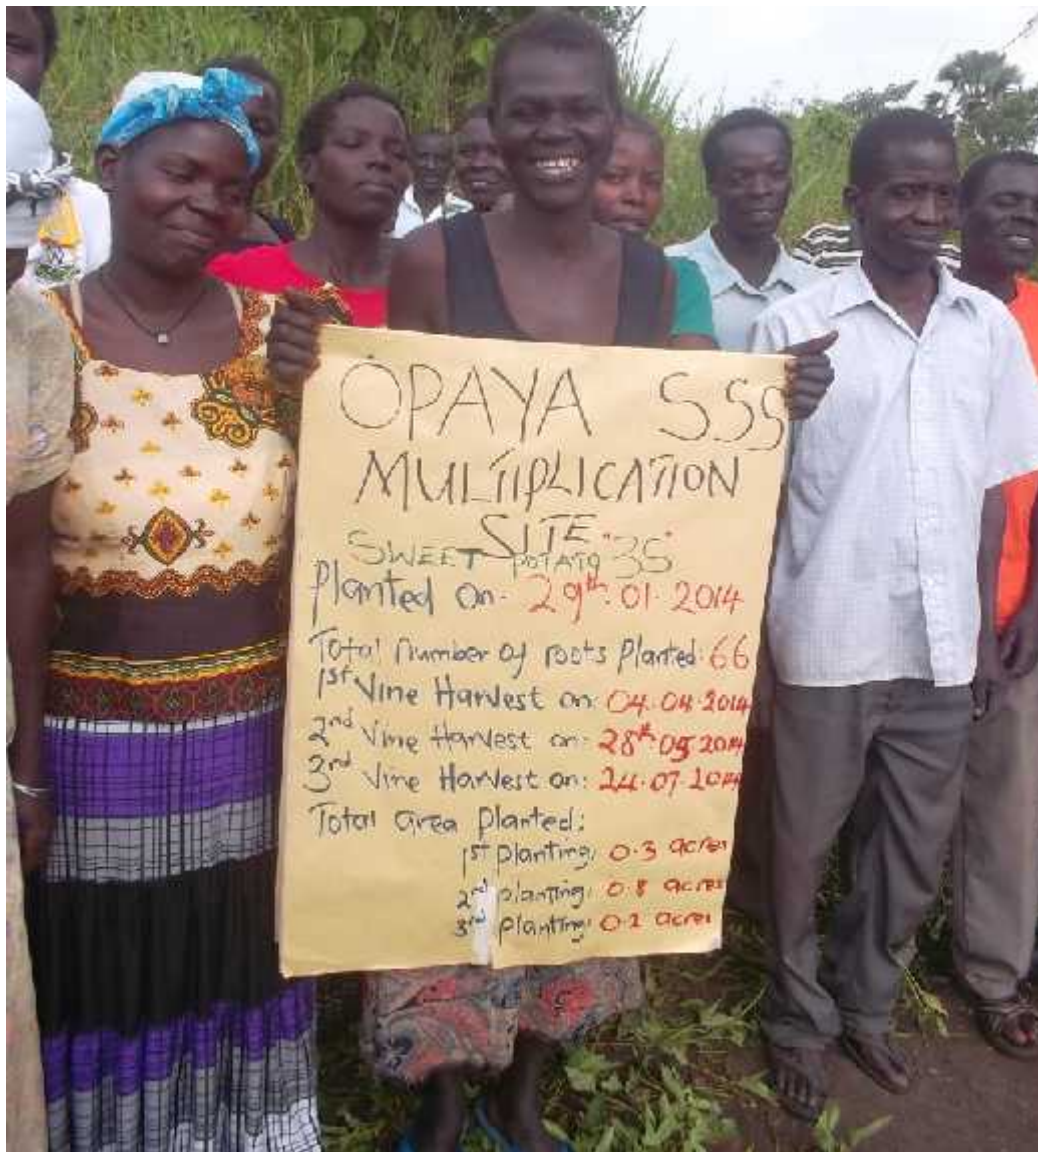 OPAYA SSG
MULTIPLICATION
SITE
SWEET POTATO "35"
Planted on: 29th.01.2014
Total number of roots planted: 66
1st Vine Harvest on: 04.04.2014
2nd Vine Harvest on: 28th.05.2014
3rd Vine Harvest on: 24.07.2014
Total area planted:
1st planting: 0.3 acres
2nd planting: 0.8 acres
3rd planting: 0.2 acres